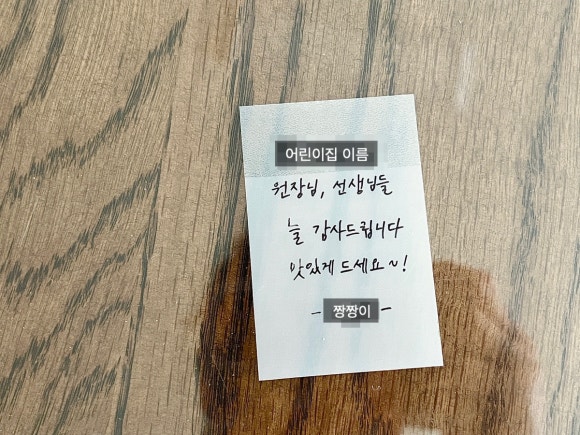 어린이집 이름
원장님, 선생님들
늘 감사드립니다
맛있게 드세요~!
- 짱짱이 -